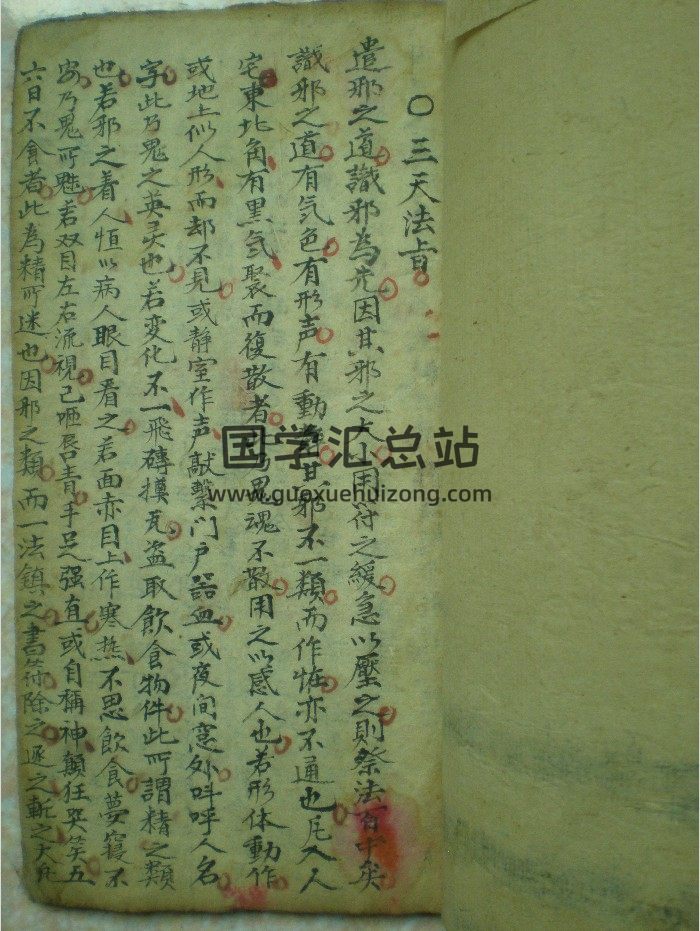 ○三天法旨
遣邪之道識邪為先因其邪之大小用符之緩急以壓之則祭法百中矣
識邪之道有気色有形声有動其邪不一類而作怪亦不通也凡入人
宅東北角有黑気聚而復散者此乃鬼魂不散用之以感人也若形体動作
或地上似人形而却不見或静室作声敲擊门户器血或夜间意外呌呼人名
字此乃鬼之英灵也若变化不一飛磚摸瓦盗取飲食物件此所謂精之類
也若邪之着人恒以病人眼目看之若面赤目上作寒热不思飲食夢寢不
安乃鬼所魅若双目左右流視己咂唇青手足强直或自稱神顛狂哭笑五
六日不食者此為精所迷也因邪之類而一法鎮之書符除之逐之斬之大凡
国学汇总站
www.guoxuehuizong.com